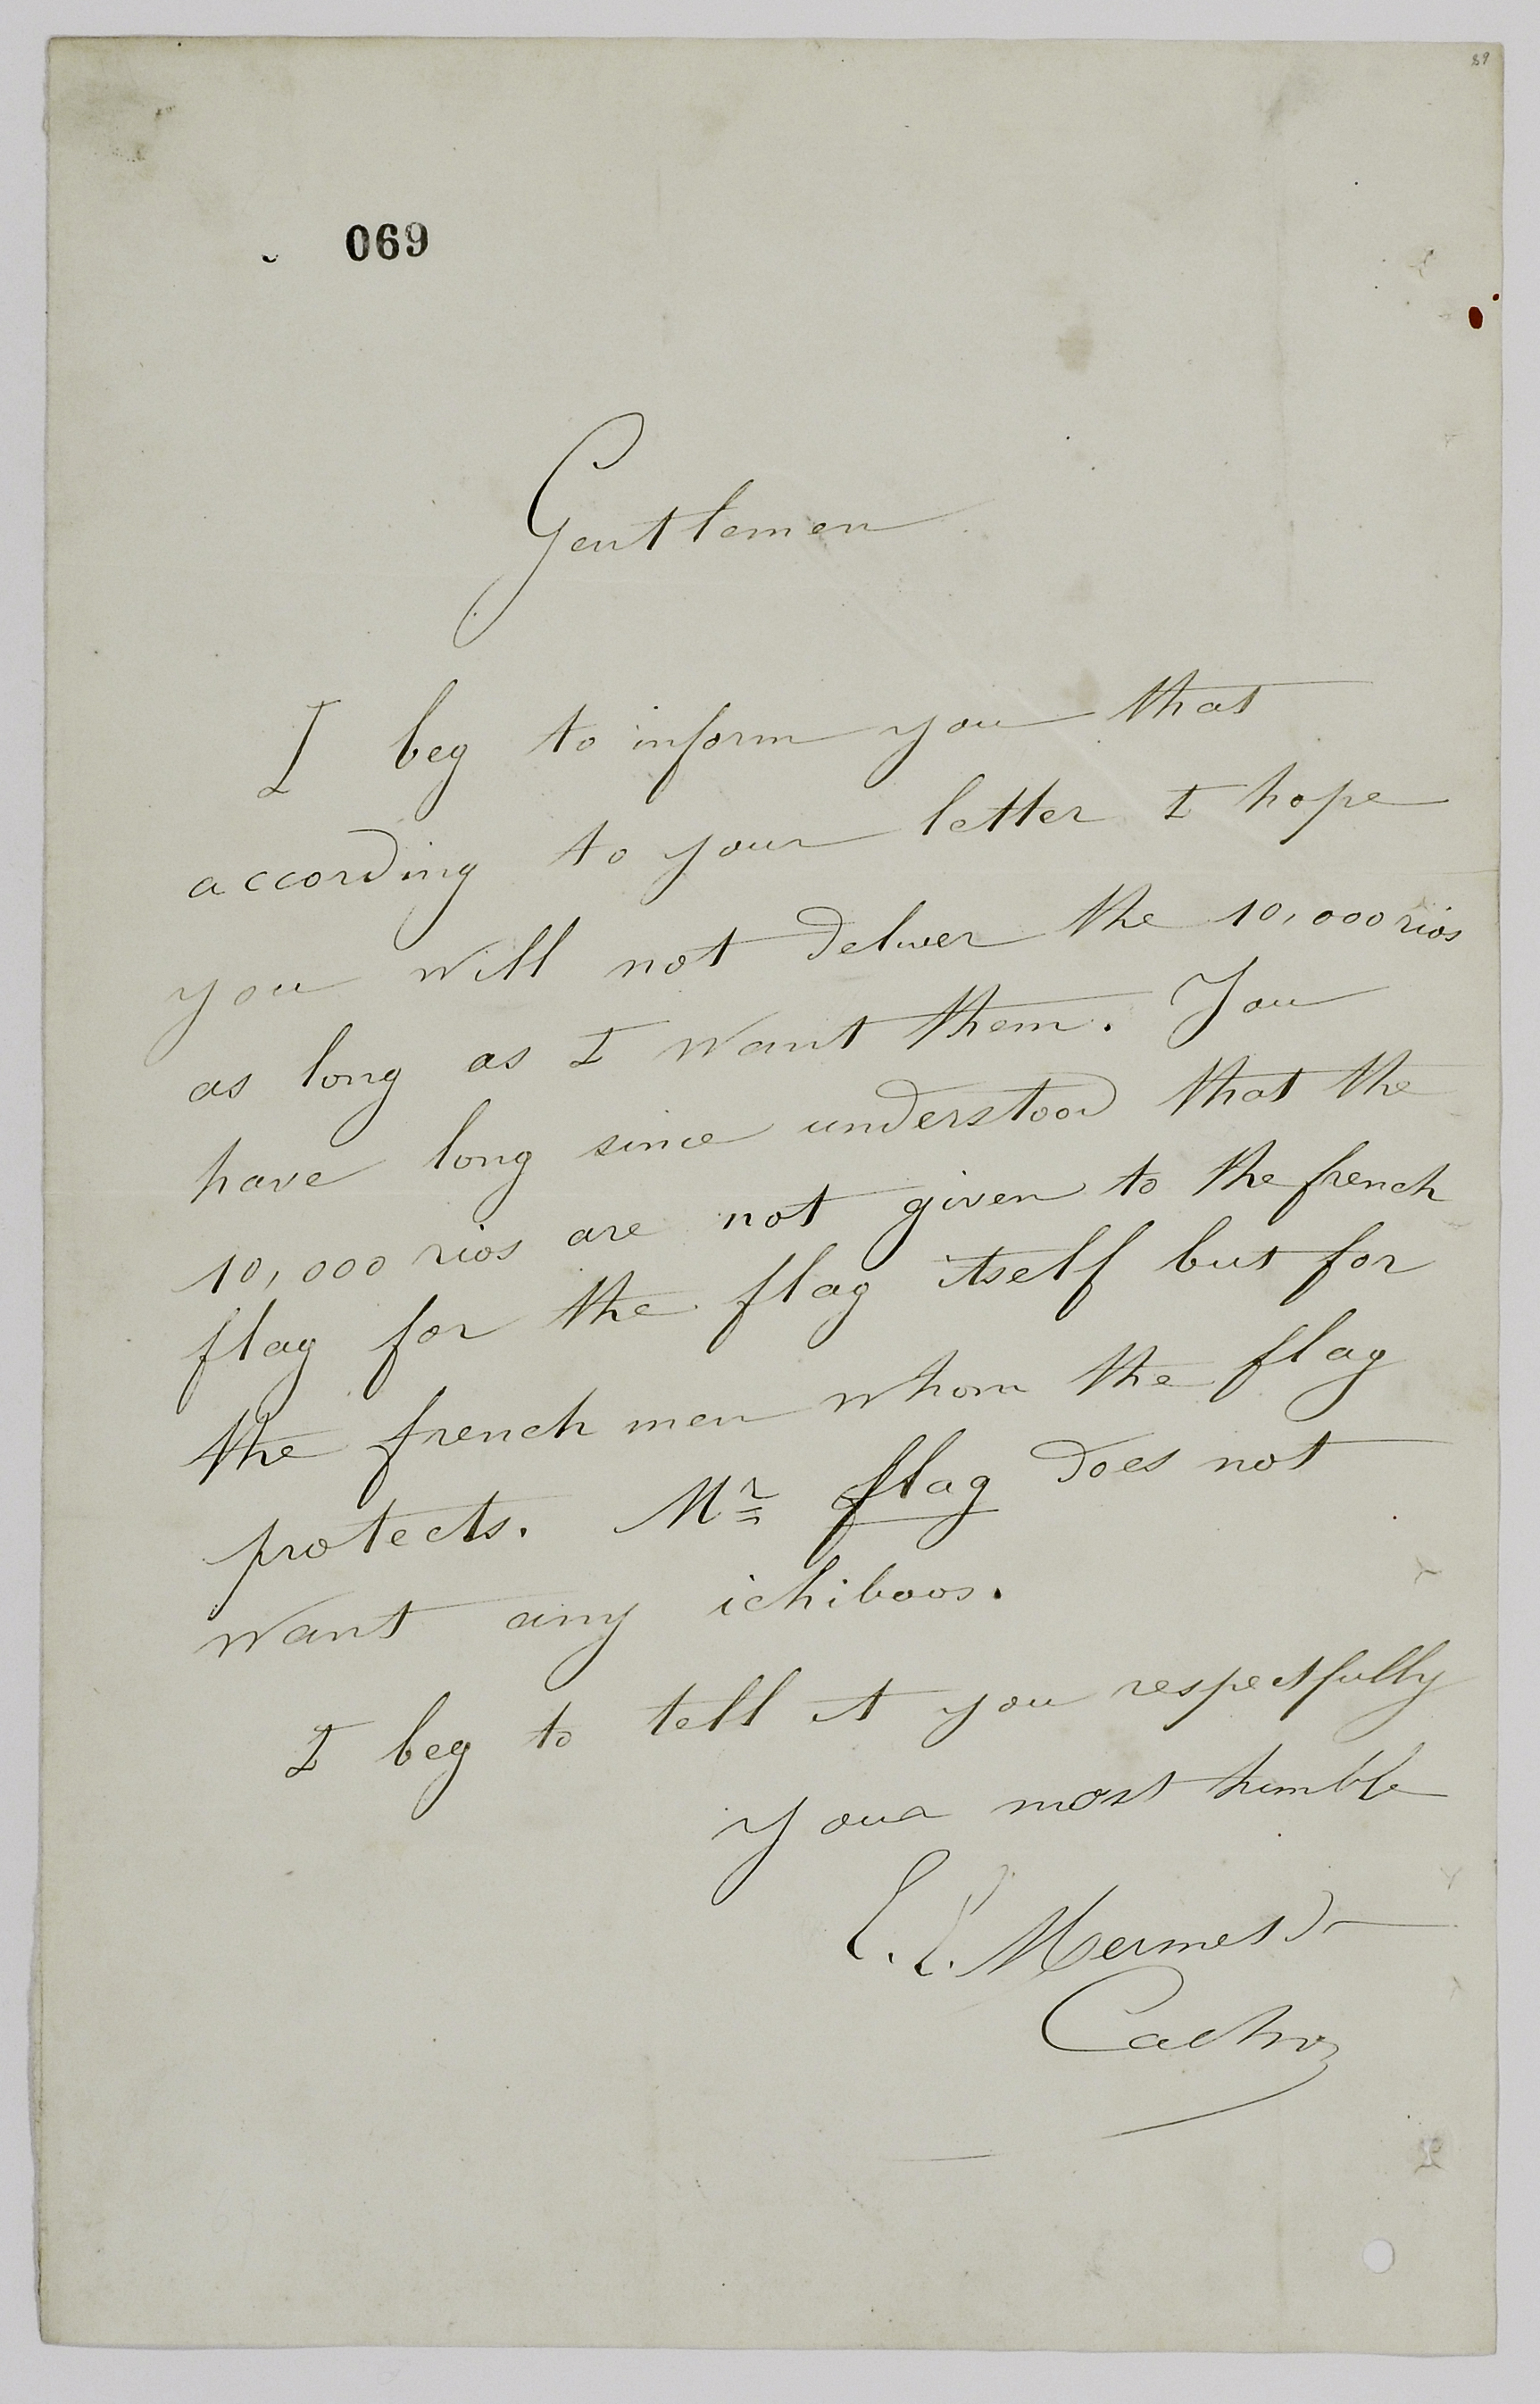 89
069
Gentlemen
I beg to inform you that
according to your letter I hope
you will not deliver the 10,000 rios
as long as I want them. You
have long since understood that the
10,000 rios are not given to the french
flag for the flag itself but for
the french men whom the flag
protects. Mr flag does not
want any ichiboos.
I beg to tell it you respectfully
your most humble
E. E. Mermet
Cachon